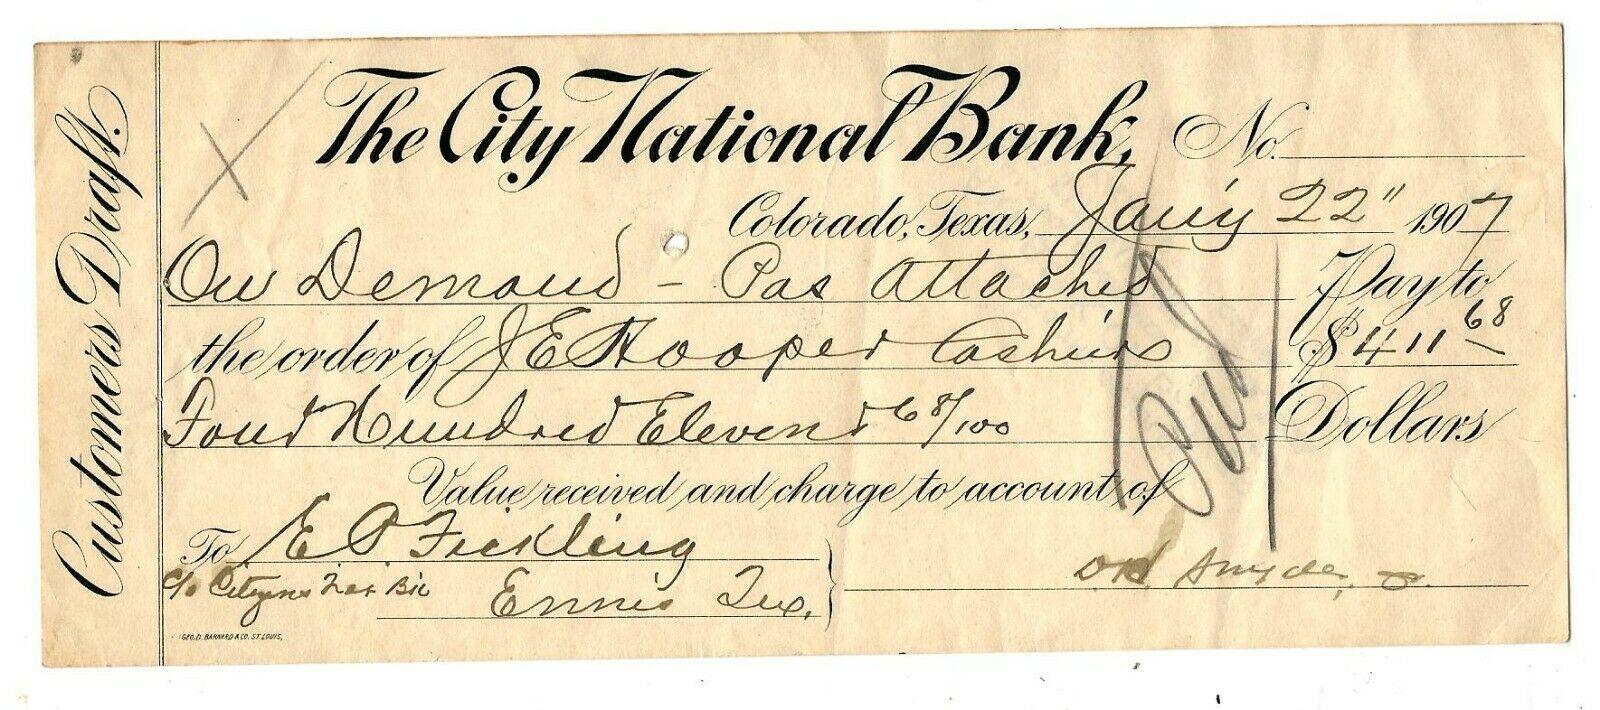 Customers Draft.
The City National Bank, No.
Colorado, Texas, Jan'y 22" 1907
On Demand - Pas Attached Pay to
the order of J E Hooper Cashier $411 68
Four Hundred Eleven & 68/100 Dollars
Value received and charge to account of
Paid
To E P Fickling
c/o Citizens Nat Bk
Ennis Tex.
D H Snyder,
GEO. D. BARNARD & CO. ST. LOUIS,